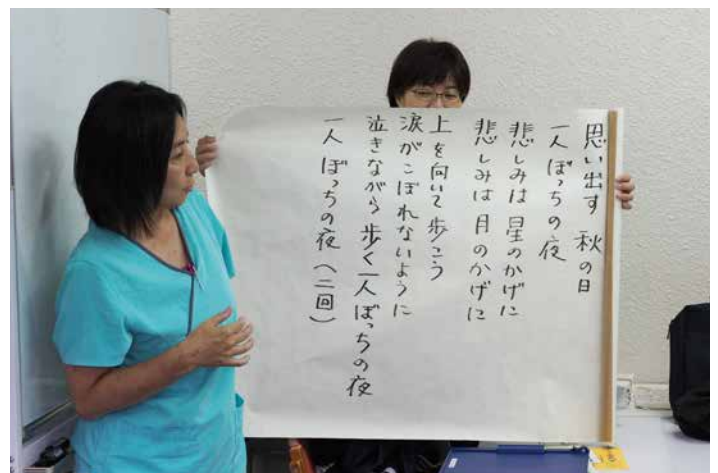 思い出す 秋の日
一人ぼっちの夜
悲しみは 星のかげに
悲しみは 月のかげに
上を向いて 歩こう
涙がこぼれないように
泣きながら 歩く 一人ぼっちの夜
一人ぼっちの夜(二回)